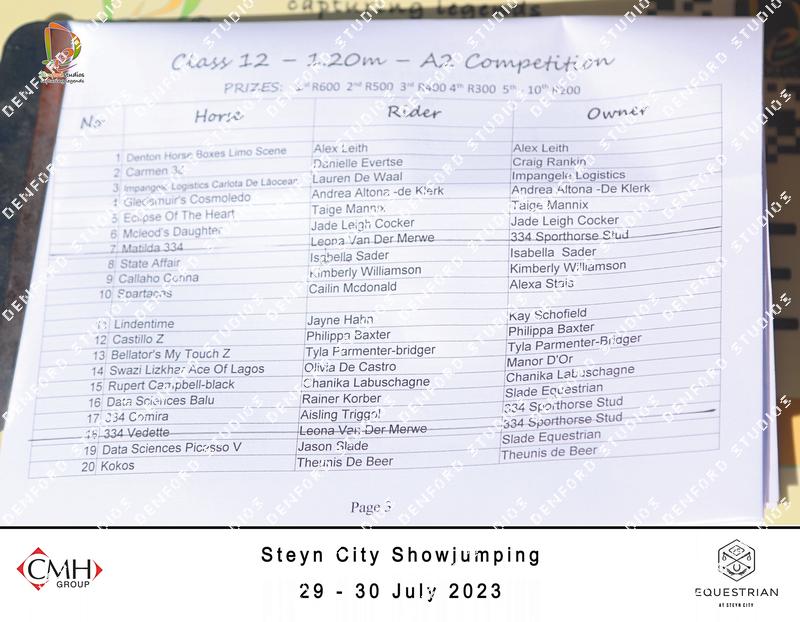 capturing legends
Class 12 - 1.20m - A2 Competition
PRIZES: 1st R600 2nd R500 3rd R400 4th R300 5th - 10th R200
No Horse Rider Owner
1 Denton Horse Boxes Limo Scene Alex Leith Alex Leith
2 Carmen Danielle Evertse Craig Rankin
3 Impangele Logistics Carlota De Lãocear Lauren De Waal Impangele Logistics
4 Gleosmuir's Cosmoledo Andrea Altona -de Klerk Andrea Altona -De Klerk
5 Eclipse Of The Heart Taige Mannix Taige Mannix
6 Mcleod's Daughter Jade Leigh Cocker Jade Leigh Cocker
7 Matilda 334 Leona Van Der Merwe 334 Sporthorse Stud
8 State Affair Isabella Sader Isabella Sader
9 Callaho Conna Kimberly Williamson Kimberly Williamson
10 Spartacus Cailin Mcdonald Alexa Stais
11 Lindentime Jayne Hahn Kay Schofield
12 Castillo Z Philippa Baxter Philippa Baxter
13 Bellator's My Touch Z Tyla Parmenter-bridger Tyla Parmenter-Bridger
14 Swazi Lizkhar Ace Of Lagos Olivia De Castro Manor D'Or
15 Rupert Campbell-black Chanika Labuschagne Chanika Labuschagne
16 Data Sciences Balu Rainer Korber Slade Equestrian
17 334 Comira Aisling Triggol 334 Sporthorse Stud
18 334 Vedette Leona Van Der Merwe 334 Sporthorse Stud
19 Data Sciences Picasso V Jason Slade Slade Equestrian
20 Kokos Theunis De Beer Theunis de Beer
Page 3
CMH
GROUP
Steyn City Showjumping
29 - 30 July 2023
EQUESTRIAN
AT STEYN CITY
DENFORD STUDIOS